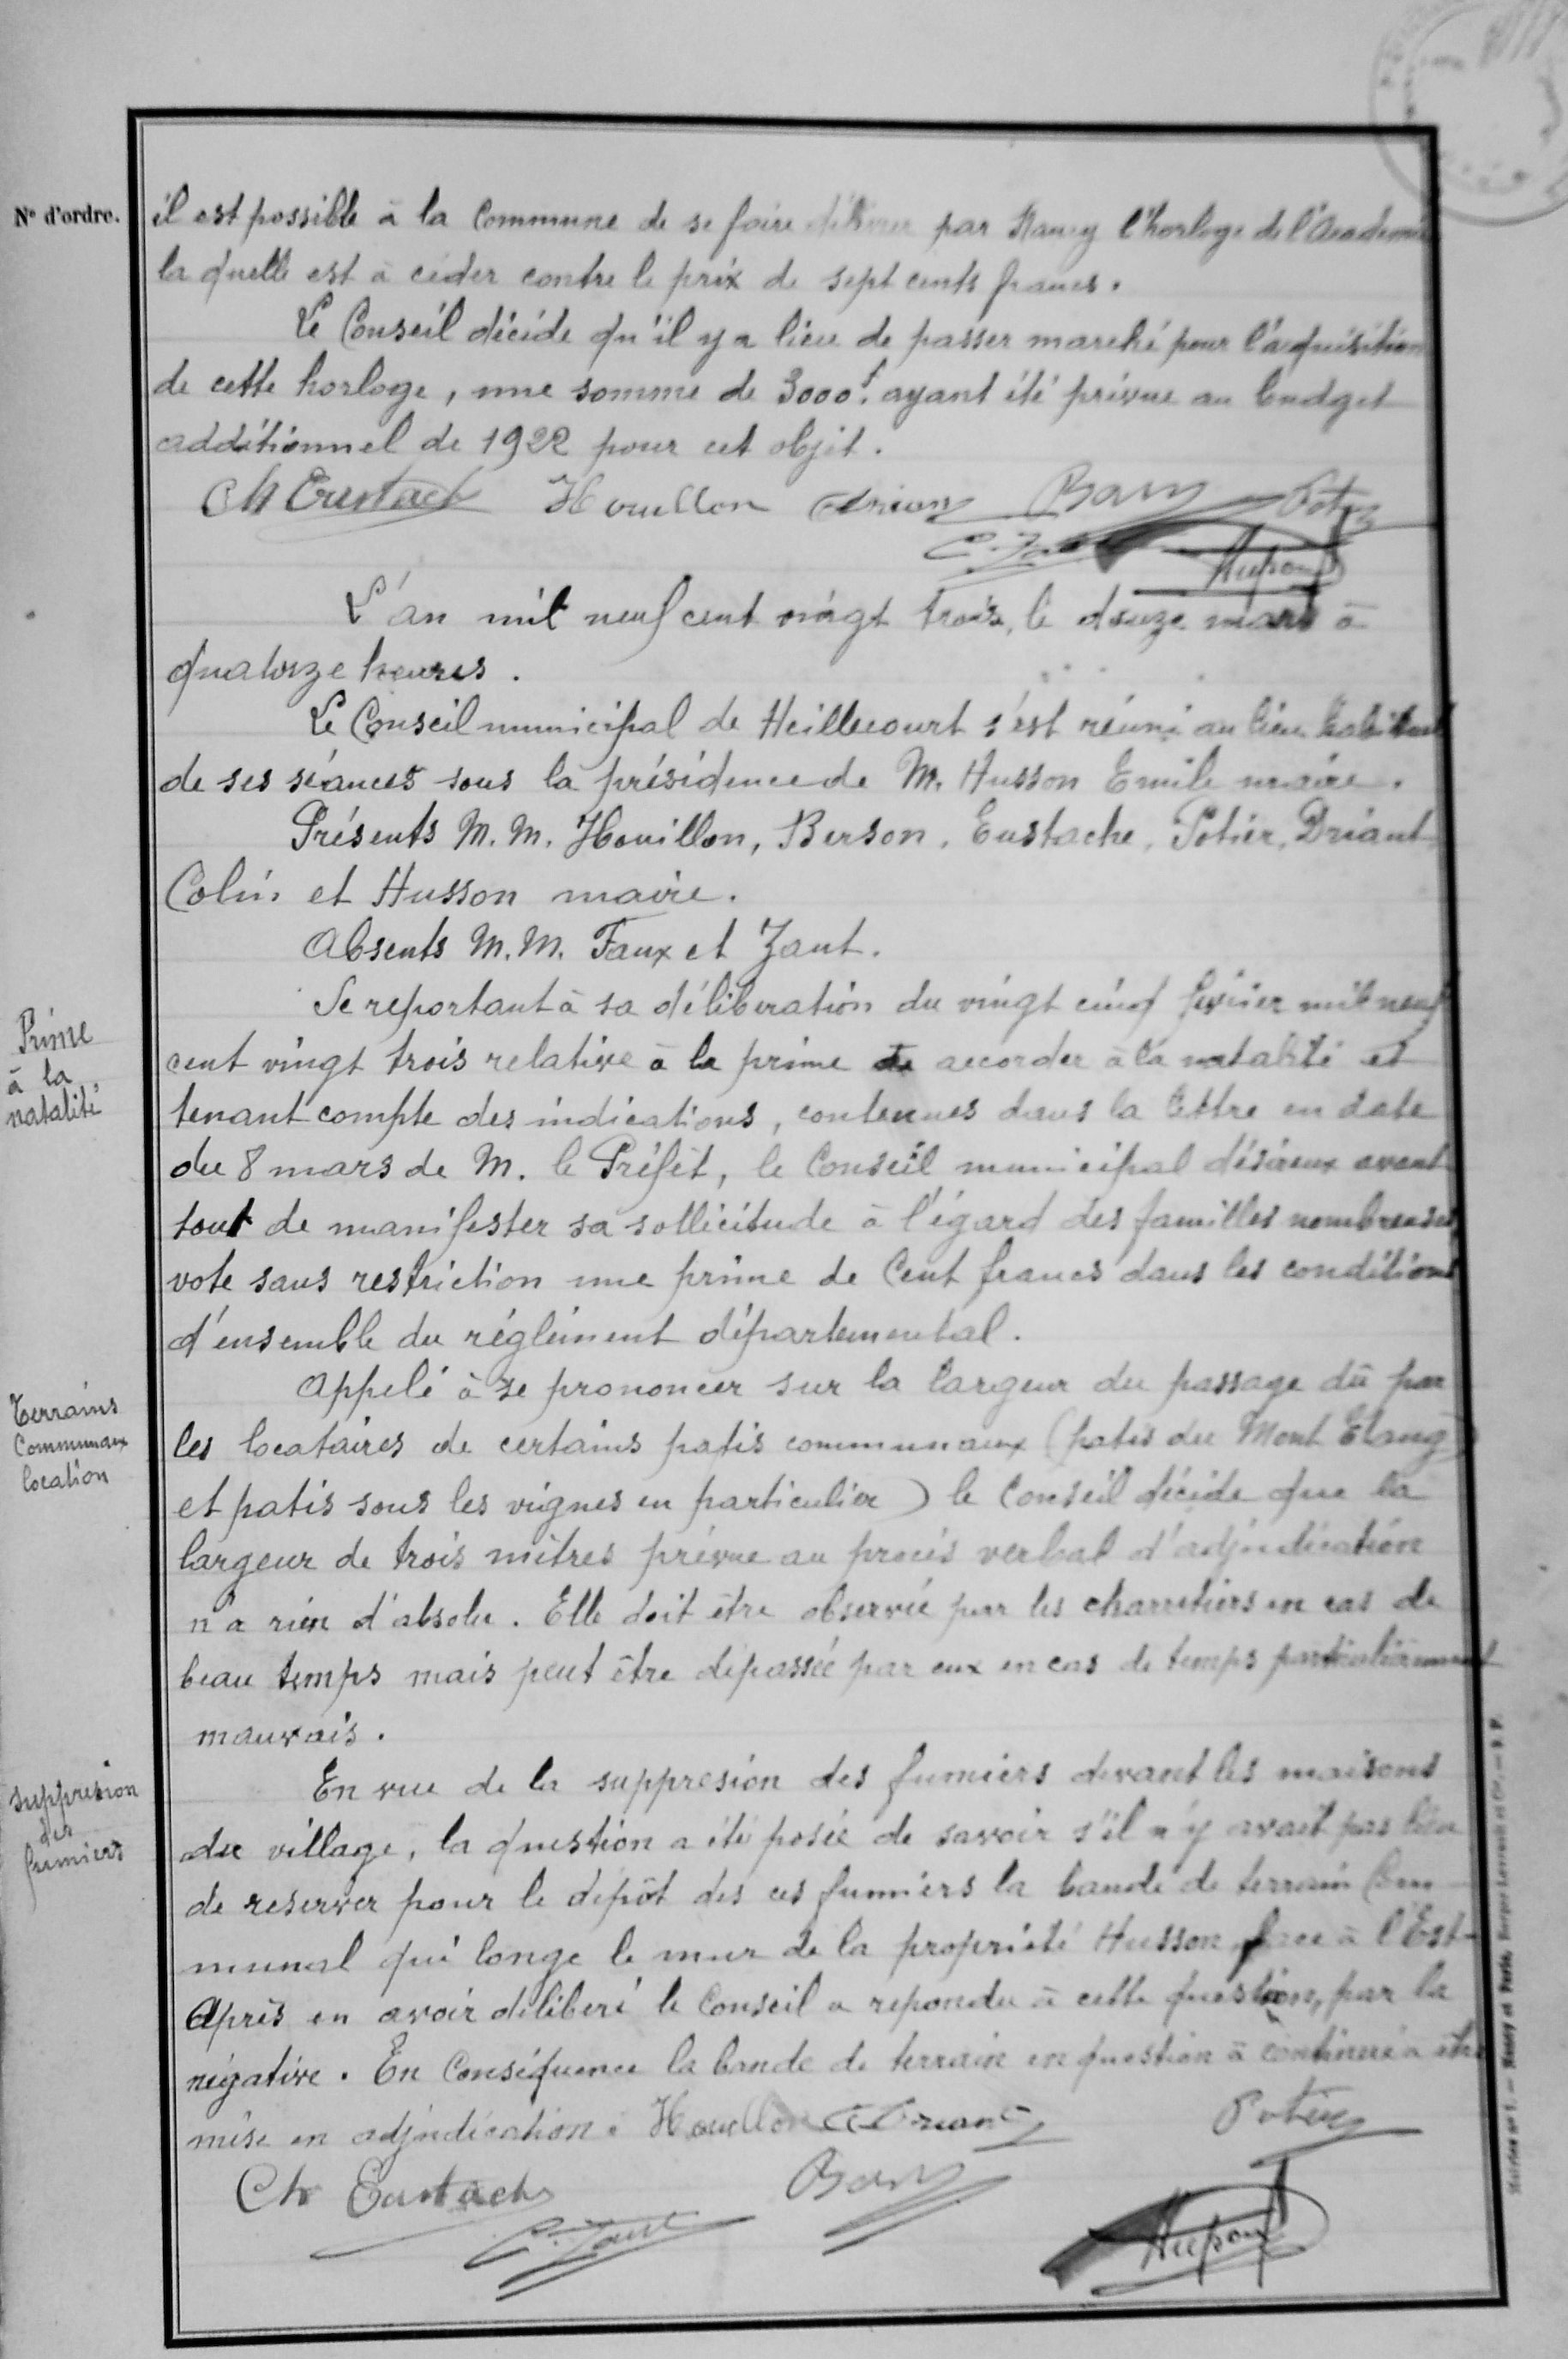 N° d'ordre.
il est possible à la Commune de se faire délivrer par Nancy l'horloge de l'Academie
la quelle est à céder contre le prix de sept cents francs.
Le Conseil décide qu'il y a lieu de passer marché pour l'acquisition
de cette horloge, une somme de 3000f. ayant été prévue au budget
additionnel de 1922 pour cet objet.
Ch Eustache Houillon Driant Potier
Husson
L'an mil neuf cent vingt trois, le douze mars à
quatorze heures.
Le Conseil municipal de Heillecourt s'est réuni au lieu habituel
de ses séances sous la présidence de M. Husson Emile maire.
Présents M. M. Houillon, Berson, Eustache, Potier, Driant
Colin et Husson maire.
Absents M. M. Faux et Zant.
Prime
à la
natalité
Se reportant à sa délibération du vingt cinq février mil neuf
cent vingt trois relative à la prime à accorder à la natalité et
tenant compte des indications, contenues dans la lettre en date
du 8 mars de M. le Préfet, le Conseil municipal désireux avant
tout de manifester sa sollicitude à l'égard des familles nombreuses
vote sans restriction une prime de Cent francs dans les conditions
d'ensemble du réglement départemental.
Terrains
Communaux
location
Appelé à se prononcer sur la largeur du passage dû par
les locataires de certains patis communaux (patis du Mont Etang
et patis sous les vignes en particulier) le Conseil décide que la
largeur de trois mètres prévue au procès verbal d'adjudication
n'a rien d'absolu. Elle doit être observée par les charretiers en cas de
beau temps mais peut être dépassée par eux en cas de temps particulièrement
mauvais.
Suppresion
des
fumiers
En vue de la suppresion des fumiers devant les maisons
du village, la question a été posée de savoir s'il n'y avait pas lieu
de reserver pour le dépôt des ces fumiers la bande de terrain Com
munal qui longe le mur de la propriété Husson, face à l'Est-
Après en avoir délibéré le Conseil a repondu à cette question, par la
négative. En Conséquence la bande de terrain en question à continuer à être
mise en adjudication. Houillon Driant Potier
Ch Eustache
C. Zant
Husson